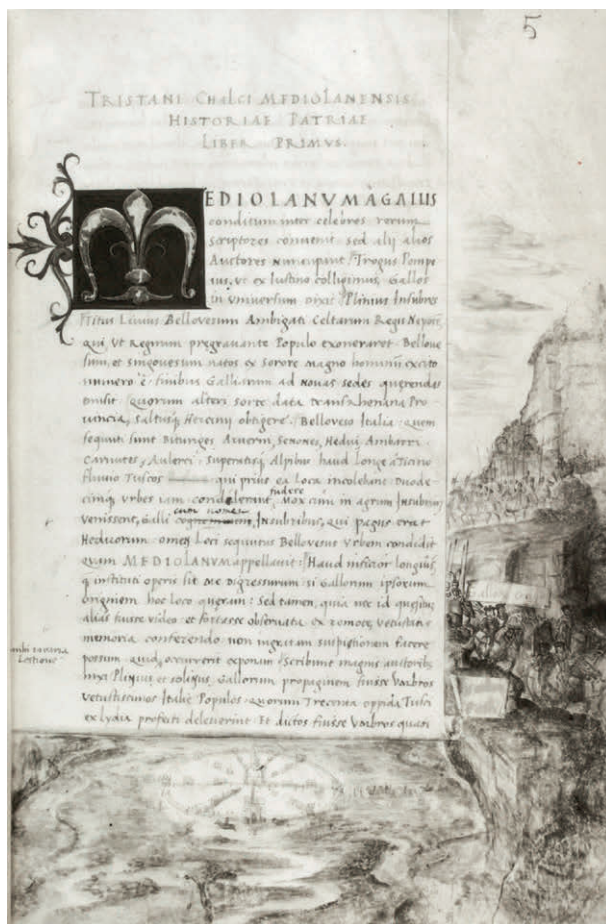 5
TRISTANI CHALCI MEDIOLANENSIS
HISTORIAE PATRIAE
LIBER PRIMVS.
MEDIOLANVM À GALLIS
conditum inter celebres rerum
scriptores convenit sed alij alios
Auctores nuncupant. Trogus Pompe
ius, ut ex Iustino colligimus, Gallos
in Universum dixit. Plinius Insubres
Titus Livius Bellovesum Ambigati Celtarum Regis Nepotē,
qui ut Regnum pregravante Populo exoneraret. Bellove
sum, et Sigovesum natos ex sorore magno hominū excito
numero è finibus Galliarum ad novas sedes querendas
misit quorum alteri sorte data transrhenana Pro
vincia, saltusq Hercinij obtigere. Belloveso Italia quem
sequuti sunt Bituriges Averni, Senones, Hedui, Ambarri
Carnutes, Aulerci. superatisq Alpibus haud longe à Ticino
fluvio Tuscos qui prius ea loca incolebant Duode
cimq urbes iam condiderant, fudere Mox cum in agrum Insubriū
venissent, Galli cognomen Insubribus, qui pagus erat
Heduorum omen loci sequutus Bellovesus Urbem condidit
quam MEDIOLANVM appellavit: Haud inficior longius,
q instituti operis sit me digressurum si Gallorum ipsorum
originem hoc loco queram: Sed tamen, quia nec id quesitū
alias fuisse video et forcasse observata ex remota vetustatis
memoria conferendo non ingratam suspitionem facere
possum quid occurrerit exponam Scribunt magni auctores
Plinius et solinus, Gallorum propaginem fuisse Umbros
vetustissimos Italie Populos quorum Trecenta oppida Tusci
ex lydia profecti deleverint. Et dictos fuisse Umbros quasi